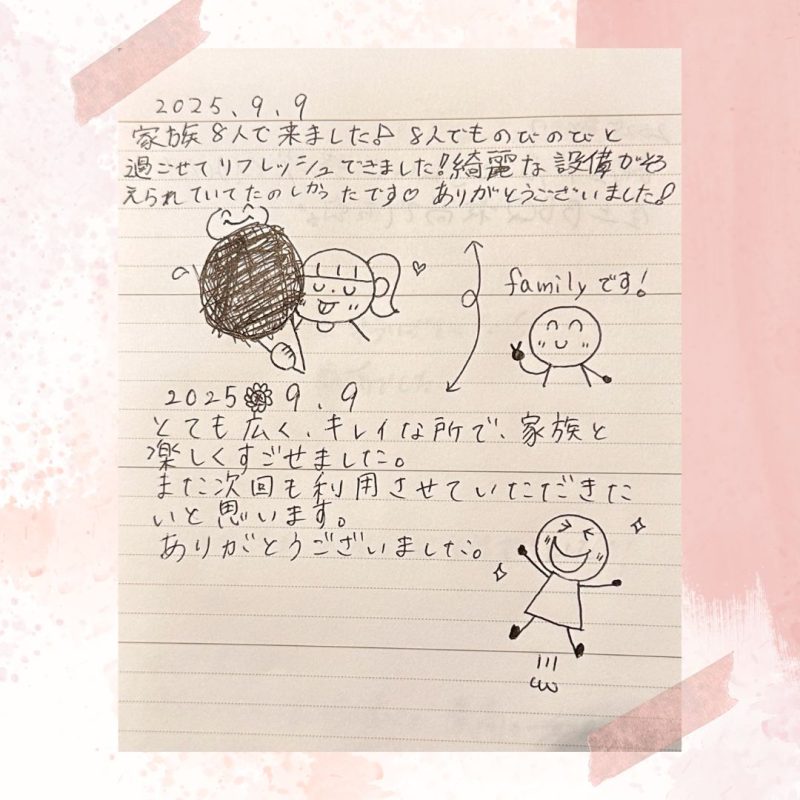 2025.9.9
家族8人で来ました♪ 8人でものびのびと
過ごせてリフレッシュできました!綺麗な設備がそろ
えられていてたのしかったです♡ ありがとうございました♪
familyです!
2025 9.9
とても広く、キレイな所で、家族と
楽しくすごせました。
また次回も利用させていただきた
いと思います。
ありがとうございました。